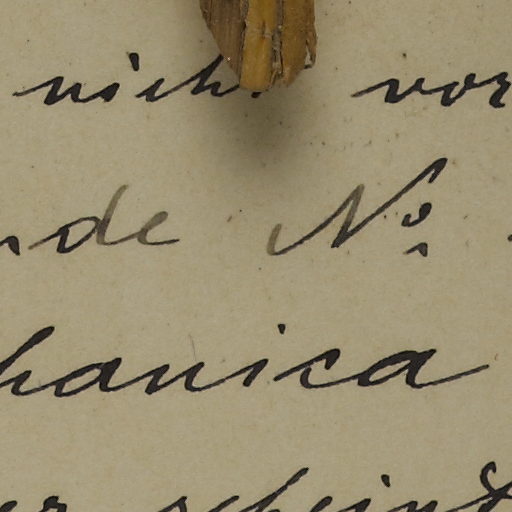 nicht vor
nde Nº
hanica
er scheint